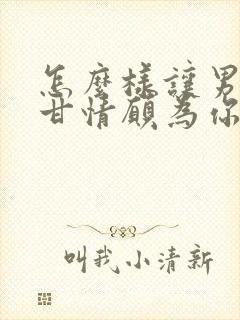 怎麼樣讓男
甘情願為你
叫我小清新